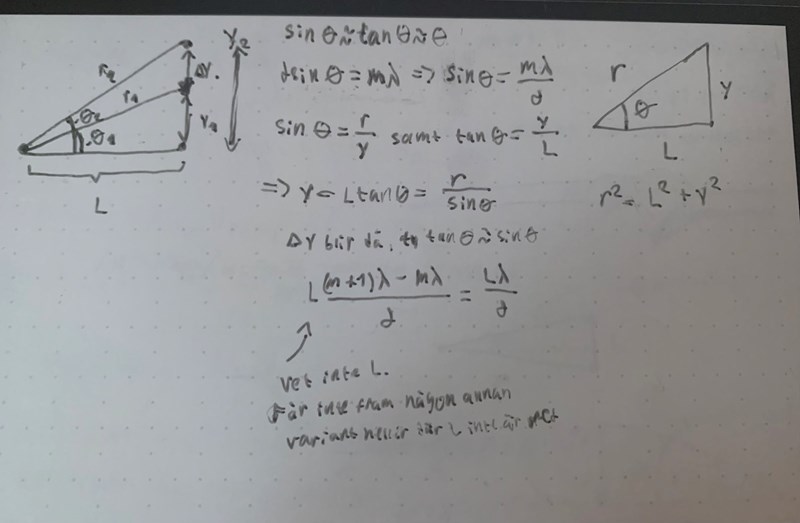 r₂
r₁
Δy.
y₂
y₁
θ₂
θ₁
L
sin θ ≈ tan θ ≈ θ
dsin θ = mλ => sin θ = mλ/d
sin θ = r/y samt tan θ = y/L
=> y = L tan θ = r/sin θ
Δy blir då, ty tan θ ≈ sin θ
L ((m+1)λ - mλ)/d = Lλ/d
Vet inte L.
Får inte fram någon annan
variant där L inte är
r
θ
y
L
r² = L² + y²